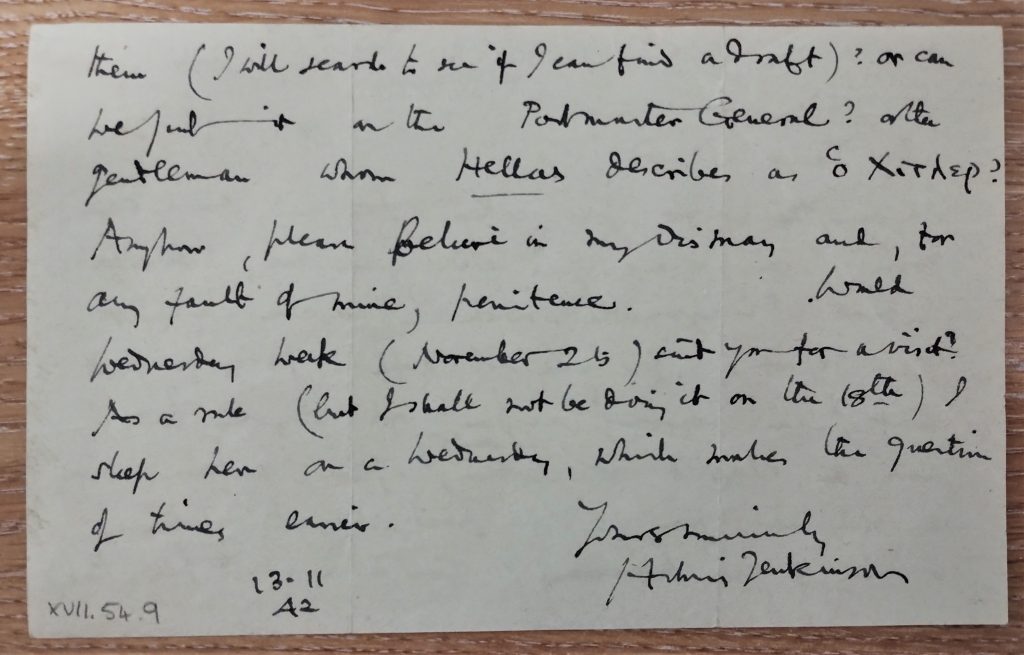 them (I will search to see if I can find a draft)? or can
we put it on the Postmaster General? or the
gentleman whom Hellas describes as ὁ Χιτλερ?
Anyhow, please believe in my dismay and, for
any fault of mine, penitence. Would
Wednesday week (November 25) suit you for a visit?
As a rule (but I shall not be doing it on the 18th) I
sleep here on a Wednesday, which makes the question
of times easier.
Yours sincerely
Hilary Jenkinson
13.11
42
XVII.54.9